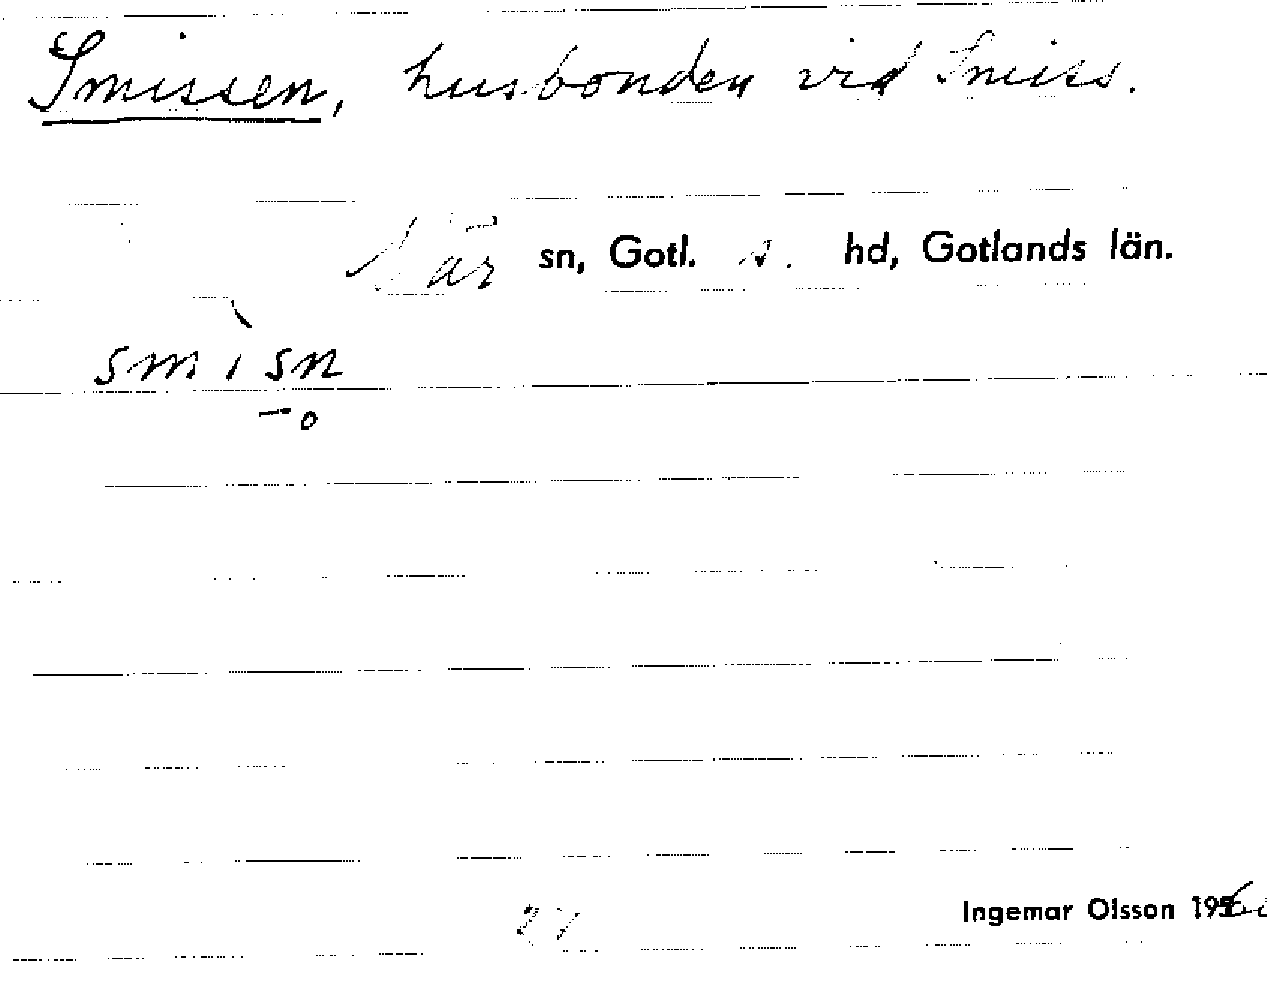 Smissen, husbonden vid Smiss.
När sn, Gotl. s. hd, Gotlands län.
smisn
27
Ingemar Olsson 19